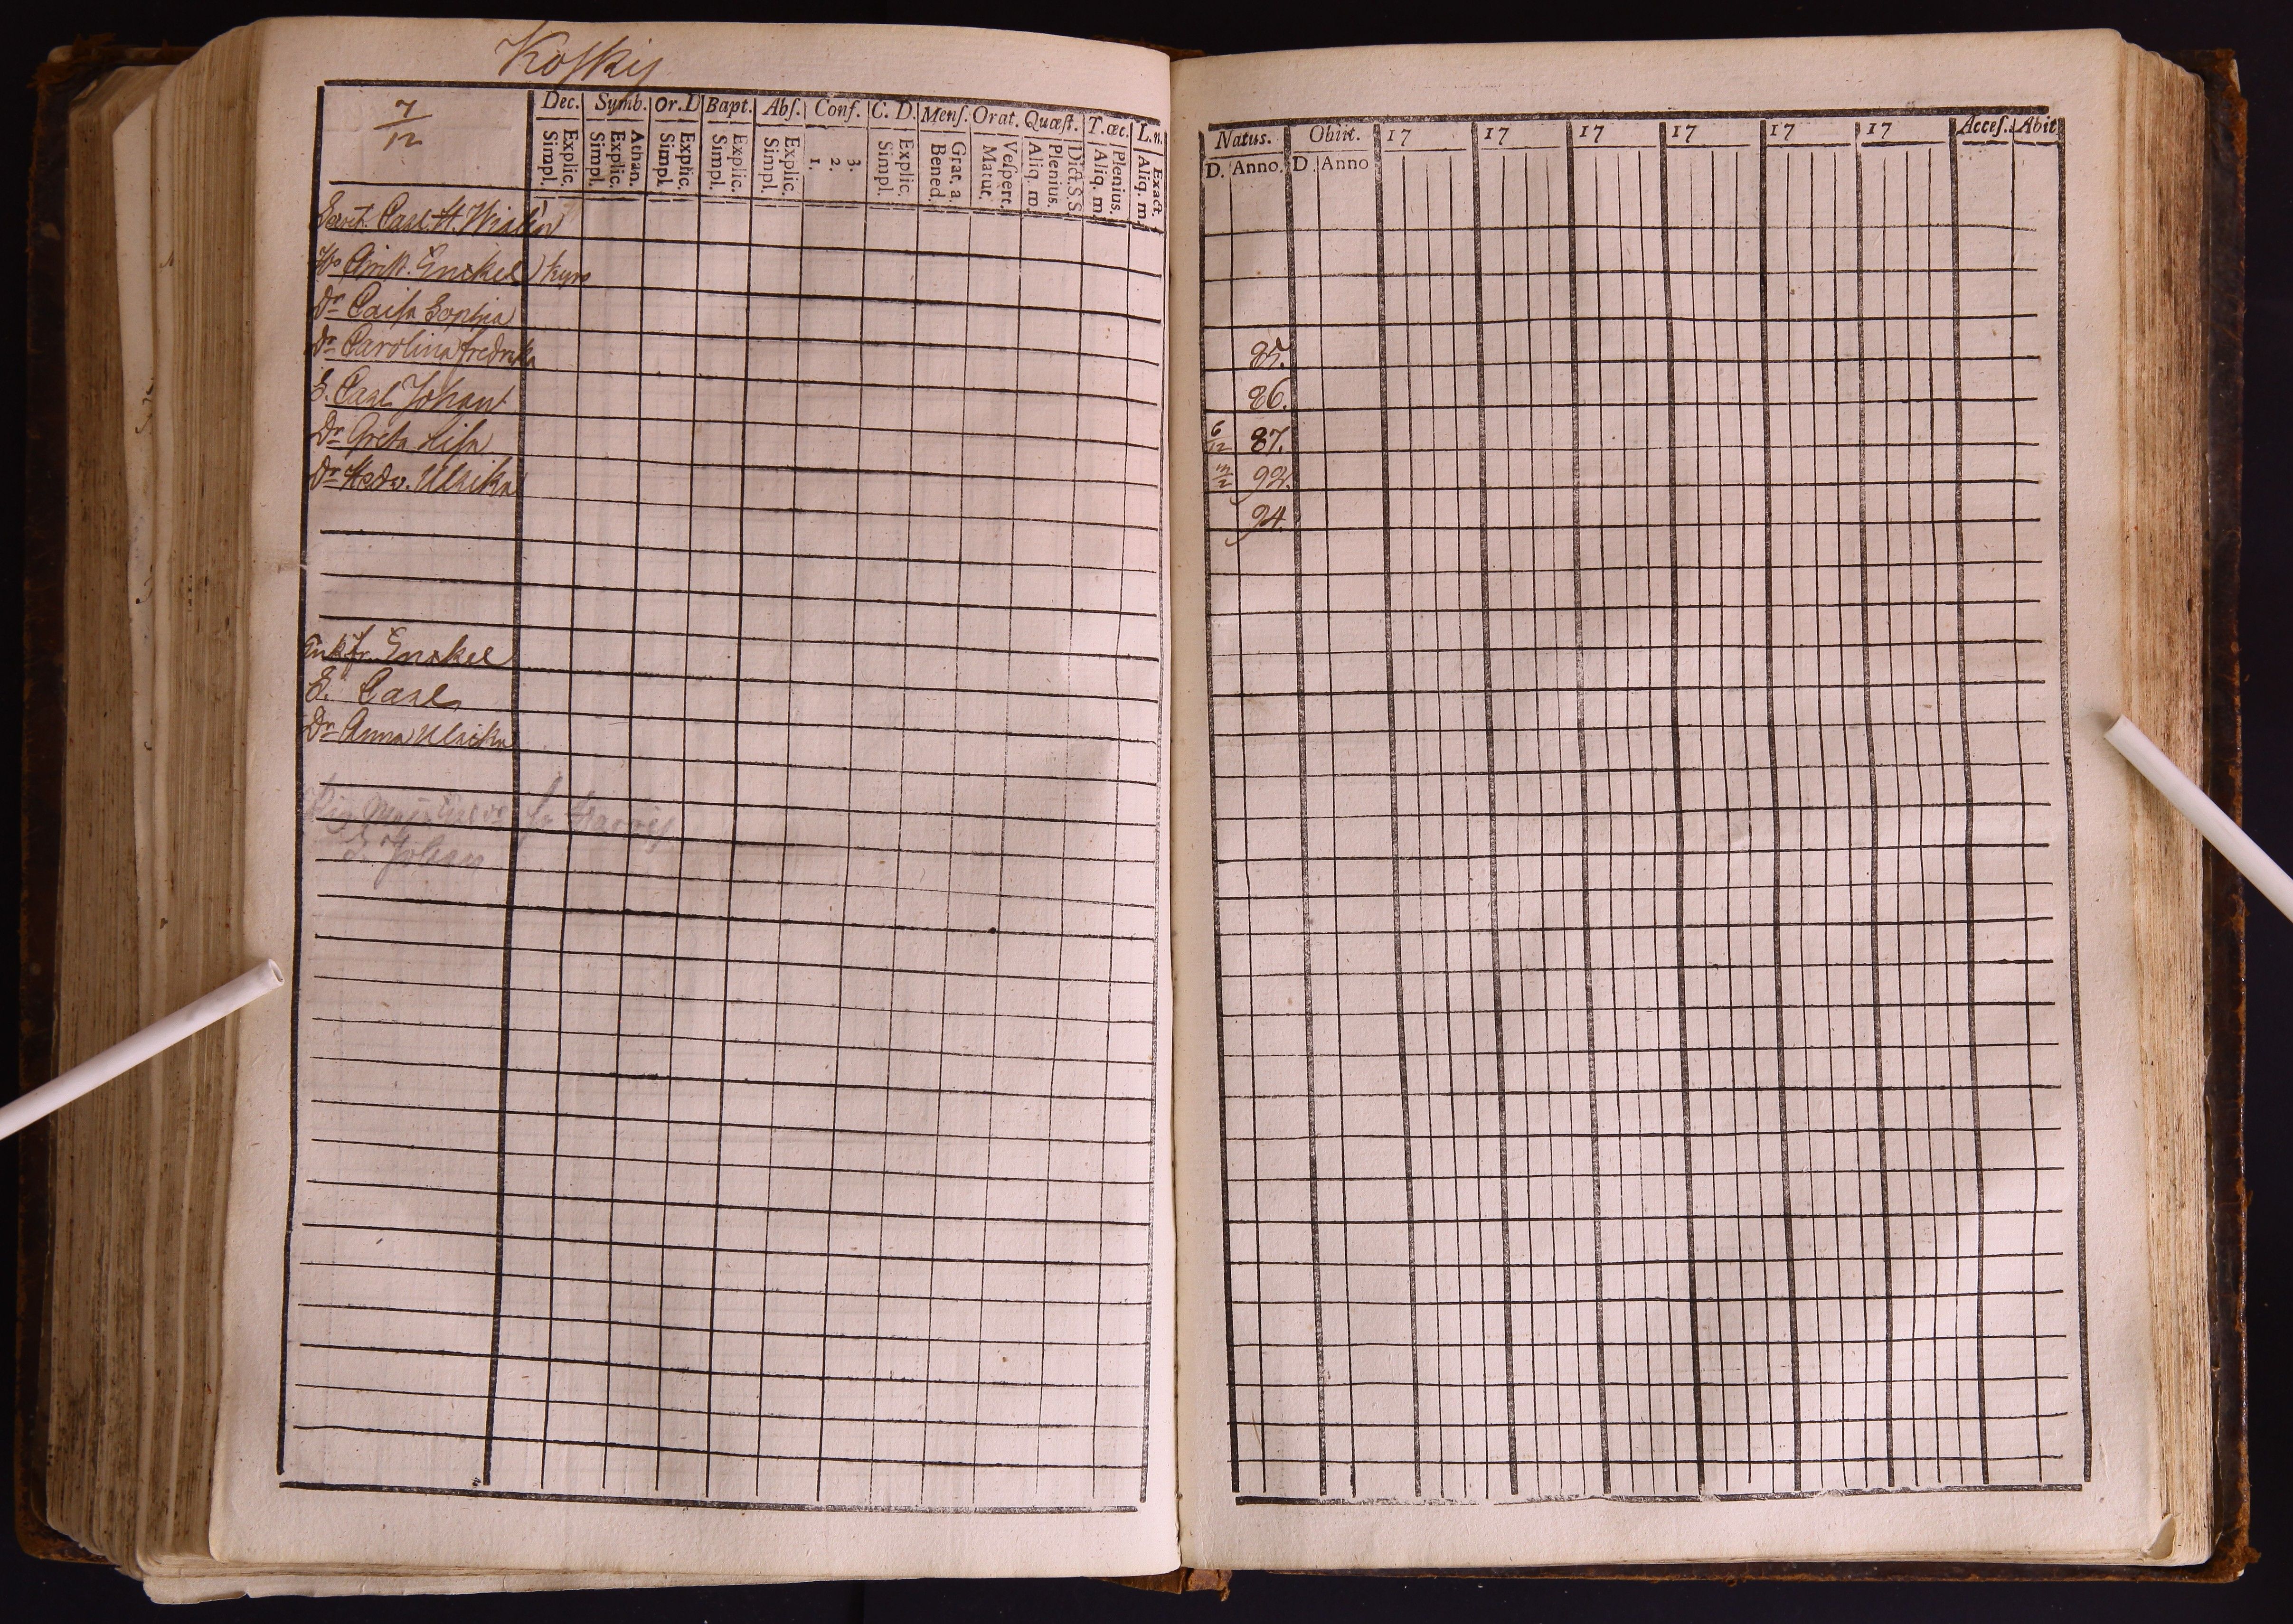 Koskis
7/12
Dec. Symb. Or.D Bapt. Abs. Conf. C. D. Mens. Orat. Quæst. T. œc. L. n.
Simpl. Explic. Simpl. Explic. Athan. Simpl. Explic. Simpl. Explic. Simpl. Explic. 1. 2. 3. Simpl. Explic. Bened. Grat. a. Matut. Vespert. Aliq. m. Plenius. Dict. S. S Aliq. m. Plenius. Aliq. m. Exact.
Carl H.
Enckel
Dr Caisa Sophia
Dr Carolina Fredrika
S. Carl Johan
Dr Greta Lisa
Dr Hedv. Ulrika
Enkfr. Enckel
S. Carl
Dr Anna Ulrika
S. Johan
Natus. Obiit. 17 17 17 17 17 17 Acces. Abit
D. Anno. D. Anno
85.
86.
6/12 87.
92.
94